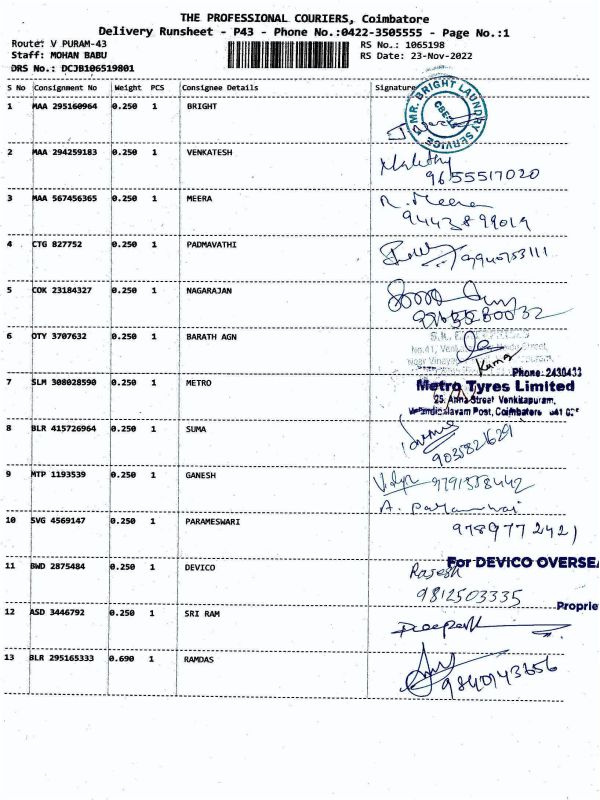 THE PROFESSIONAL COURIERS, Coimbatore
Delivery Runsheet - P43 - Phone No.:0422-3505555 - Page No.:1
Route: V PURAM-43 RS No.: 1065198
Staff: MOHAN BABU RS Date: 23-Nov-2022
DRS No.: DCJB106519801
S No Consignment No Weight PCS Consignee Details Signature
1 MAA 295160964 0.250 1 BRIGHT
MR. BRIGHT LAUNDRY SERVICE
2 MAA 294259183 0.250 1 VENKATESH
9655517020
3 MAA 567456365 0.250 1 MEERA R. Meera
9443899019
4 CTG 827752 0.250 1 PADMAVATHI
5 COK 23184327 0.250 1 NAGARAJAN
6 OTY 3707632 0.250 1 BARATH AGN
No.41,
Kumar
Phone: 2430433
7 SLM 308028590 0.250 1 METRO Metro Tyres Limited
25, Anna Street Venkitapuram,
Post, Coimbatore
8 BLR 415726964 0.250 1 SUMA
9035821629
9 MTP 1193539 0.250 1 GANESH
9791358442
10 SVG 4569147 0.250 1 PARAMESWARI A.
9789772421
11 BWD 2875484 0.250 1 DEVICO For DEVICO OVERSEA
Rajesh
9812503335
Proprie
12 ASD 3446792 0.250 1 SRI RAM Deepak
13 BLR 295165333 0.690 1 RAMDAS
9840143656